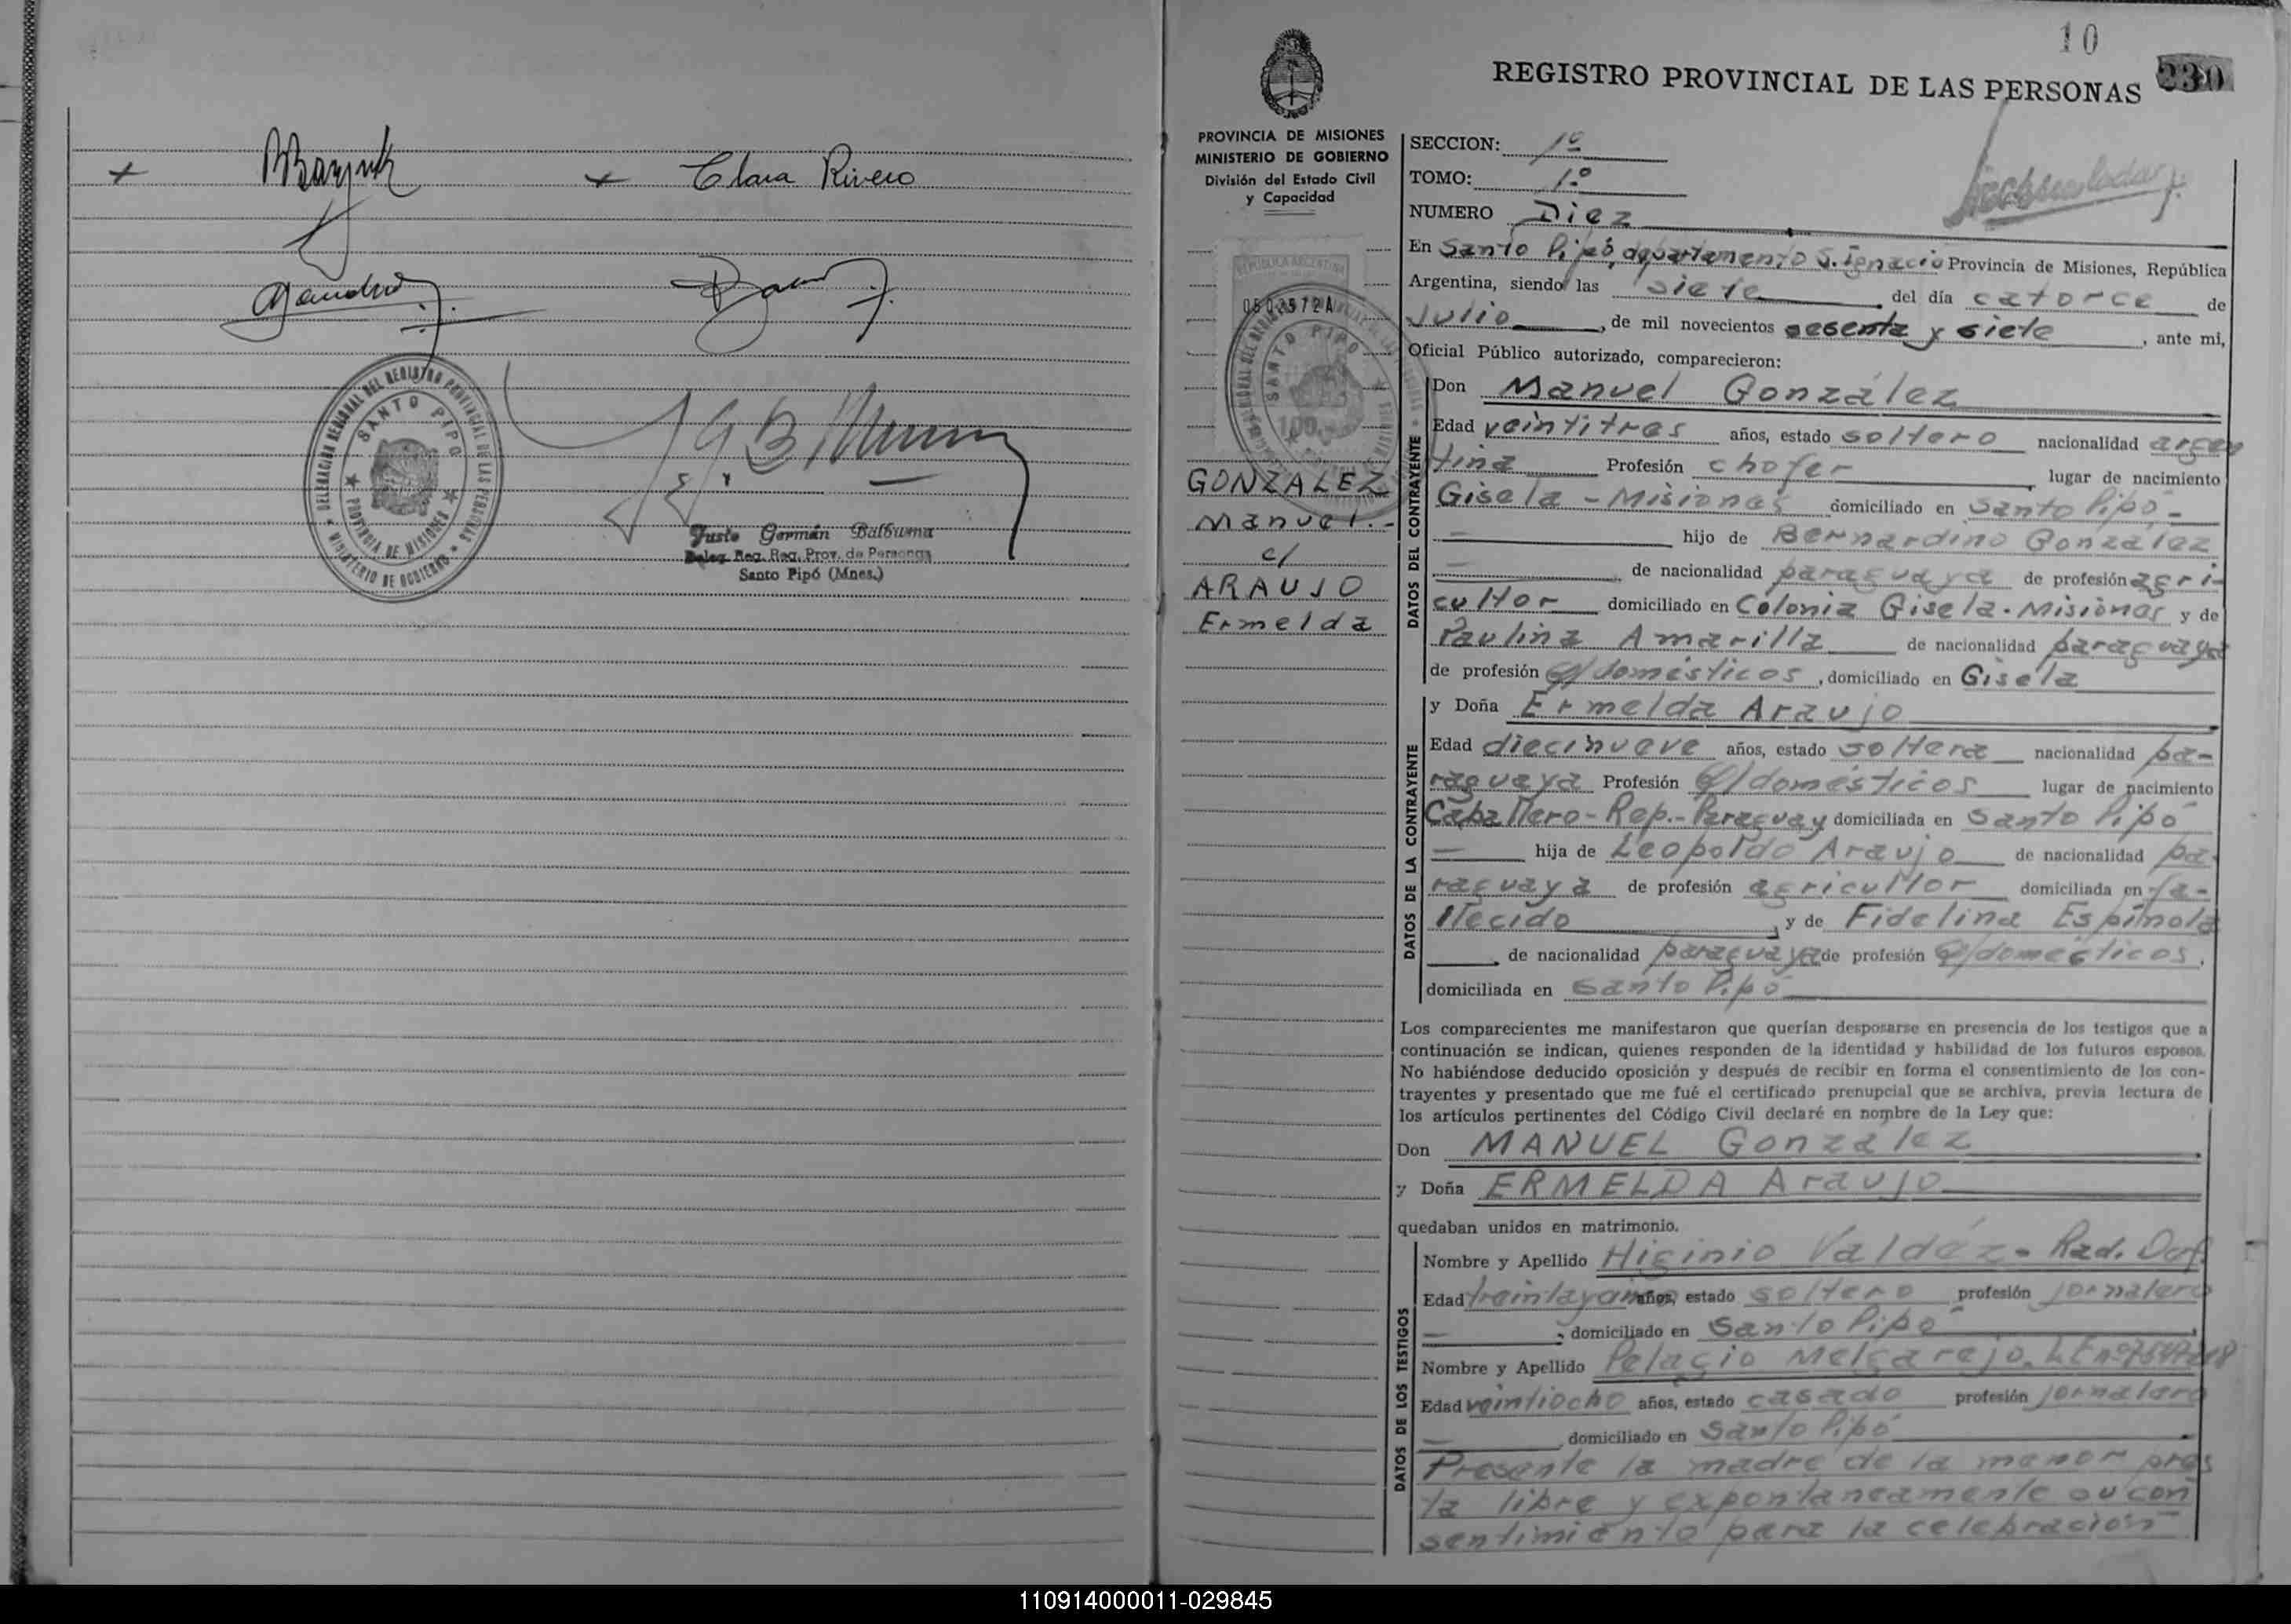 Clara Rivero
DELEGACION REGIONAL DEL REGISTRO PROVINCIAL DE LAS PERSONAS
SANTO PIPO
PROVINCIA DE MISIONES
MINISTERIO DE GOBIERNO
Justo Germán Balbuena
Deleg. Reg. Reg. Prov. de Personas
Santo Pipó (Mnes.)
10
REGISTRO PROVINCIAL DE LAS PERSONAS
230
PROVINCIA DE MISIONES
MINISTERIO DE GOBIERNO
División del Estado Civil
y Capacidad
REPUBLICA ARGENTINA
SANTO PIPO
100
GONZALEZ
Manuel.-
c/
ARAUJO
Ermelda
SECCION: 1º
TOMO: 1º
NUMERO Diez
En Santo Pipó, departamento S. Ignacio Provincia de Misiones, República
Argentina, siendo las siete del día catorce de
Julio, de mil novecientos sesenta y siete, ante mi,
Oficial Público autorizado, comparecieron:
DATOS DEL CONTRAYENTE
Don Manuel González
Edad veintitres años, estado soltero nacionalidad argen
tina Profesión chofer, lugar de nacimiento
Gisela - Misiones domiciliado en Santo Pipó -
— hijo de Bernardino González
—, de nacionalidad paraguaya de profesión agri-
cultor domiciliado en Colonia Gisela - Misiones y de
Paulina Amarilla de nacionalidad paraguaya
de profesión q/domésticos, domiciliado en Gisela
DATOS DE LA CONTRAYENTE
y Doña Ermelda Araujo
Edad diecinueve años, estado soltera nacionalidad pa-
raguaya Profesión q/domésticos lugar de nacimiento
Caballero - Rep. - Paraguay domiciliada en Santo Pipó
— hija de Leopoldo Araujo de nacionalidad pa-
raguaya de profesión agricultor domiciliada en fa-
llecido, y de Fidelina Espínola
, de nacionalidad paraguaya de profesión q/domésticos,
domiciliada en Santo Pipó
Los comparecientes me manifestaron que querían desposarse en presencia de los testigos que a
continuación se indican, quienes responden de la identidad y habilidad de los futuros esposos.
No habiéndose deducido oposición y después de recibir en forma el consentimiento de los con-
trayentes y presentado que me fué el certificado prenupcial que se archiva, previa lectura de
los artículos pertinentes del Código Civil declaré en nombre de la Ley que:
Don MANUEL González
y Doña ERMELDA Araujo
quedaban unidos en matrimonio.
DATOS DE LOS TESTIGOS
Nombre y Apellido Higinio Valdéz - Rad.
Edad treintaycinco años, estado soltero profesión jornalero
—, domiciliado en Santo Pipó
Nombre y Apellido Pelagio Melgarejo. L.E nº
Edad veintiocho años, estado casado profesión jornalero
—, domiciliado en Santo Pipó
Presente la madre de la menor pres
ta libre y expontaneamente su con
sentimiento para la celebración
110914000011-029845